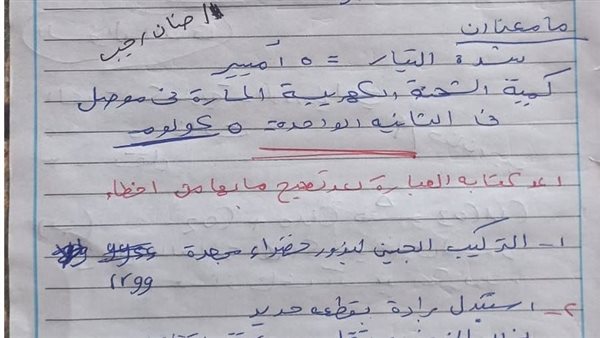 أ/ حنان رجب
ما معنى أن
شدة التيار = ٥ أمبير
كمية الشحنة الكهربية المارة فى موصل
فى الثانية الواحدة ٥ كولوم
اعد كتابة العبارة بعد تصحيح ما بها من اخطاء
١- التركيب الجينى لبذور خضراء مجعدة
yyrr
٢- استبدل برادة بقطعة حديد